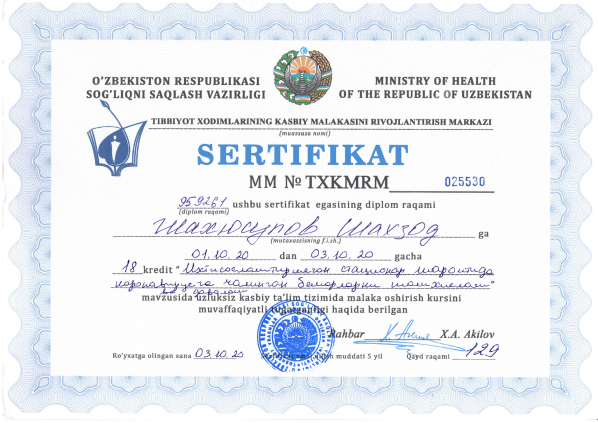 O'ZBEKISTON RESPUBLIKASI
SOG'LIQNI SAQLASH VAZIRLIGI
MINISTRY OF HEALTH
OF THE REPUBLIC OF UZBEKISTAN
TIBBIYOT XODIMLARINING KASBIY MALAKASINI RIVOJLANTIRISH MARKAZI
(muassasa nomi)
SERTIFIKAT
MM № TXKMRM 025530
959261 ushbu sertifikat egasining diplom raqami
(diplom raqami)
Шахюсупов Шахзод ga
(mutaxassisning f.i.sh.)
01.10.20 dan 03.10.20 gacha
18 kredit "Ихтисослаштирилган стационар шароитида
коронавирусга чалинган беморларни ташхислаш"
ва даволаш
mavzusida uzluksiz kasbiy ta'lim tizimida malaka oshirish kursini
muvaffaqiyatli tugatganligi haqida berilgan
Rahbar X.A. Akilov
Ro'yxatga olingan sana 03.10.20 muddati 5 yil Qayd raqami 129